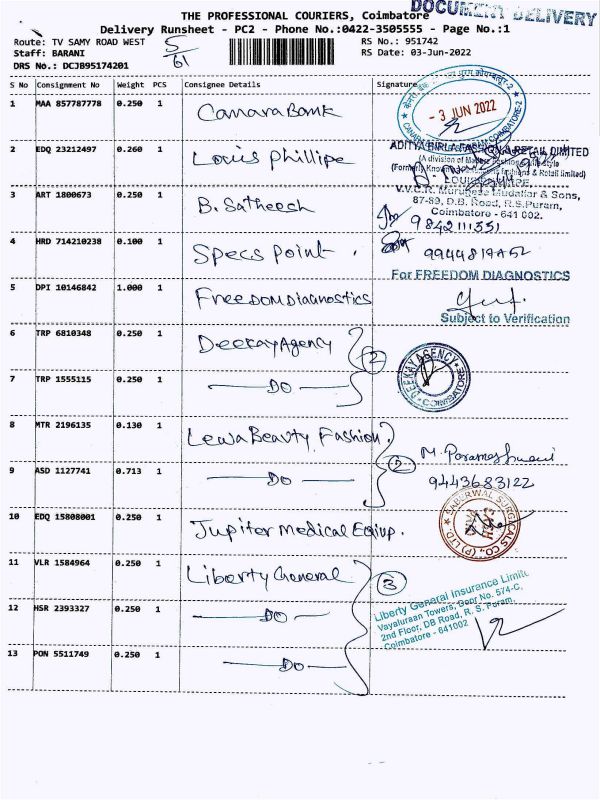 DOCUMENT DELIVERY
THE PROFESSIONAL COURIERS, Coimbatore
Delivery Runsheet - PC2 - Phone No.:0422-3505555 - Page No.:1
Route: TV SAMY ROAD WEST
Staff: BARANI
DRS No.: DCJB95174201
5/61
RS No.: 951742
RS Date: 03-Jun-2022
S No Consignment No Weight PCS Consignee Details Signature
1 MAA 857787778 0.250 1 Canara Bank
- 3 JUN 2022
2 EDQ 23212497 0.260 1 Louis Phillipe
ADITYA BIRLA FASHION & RETAIL LIMITED
(A division of Madura Fashion & Lifestyle
3 ART 1800673 0.250 1 B. Satheesh
V.V.C.R. Murugesa Mudaliar & Sons,
87-89, D.B. Road, R.S.Puram,
Coimbatore - 641 002.
9842111351
4 HRD 714210238 0.100 1 Specs Point.
For FREEDOM DIAGNOSTICS
5 DPI 10146842 1.000 1 Freedom Diagnostics
Subject to Verification
6 TRP 6810348 0.250 1 Deekay Agency
2
DEEKAY AGENCY
COIMBATORE
7 TRP 1555115 0.250 1 DO
8 MTR 2196135 0.130 1 Lewa Beauty Fashion
2
M. Parameshwari
9443683122
9 ASD 1127741 0.713 1 DO
10 EDQ 15808001 0.250 1 Jupiter Medical Equip.
SABERWAL SURGICALS CO., (P) LTD
11 VLR 1584964 0.250 1 Liberty General
3
Liberty General Insurance Limite
Vayaluraan Towers, Door No. 574-C,
2nd Floor, DB Road, R. S. Puram,
Coimbatore - 641002
12 HSR 2393327 0.250 1 DO
13 PON 5511749 0.250 1 DO